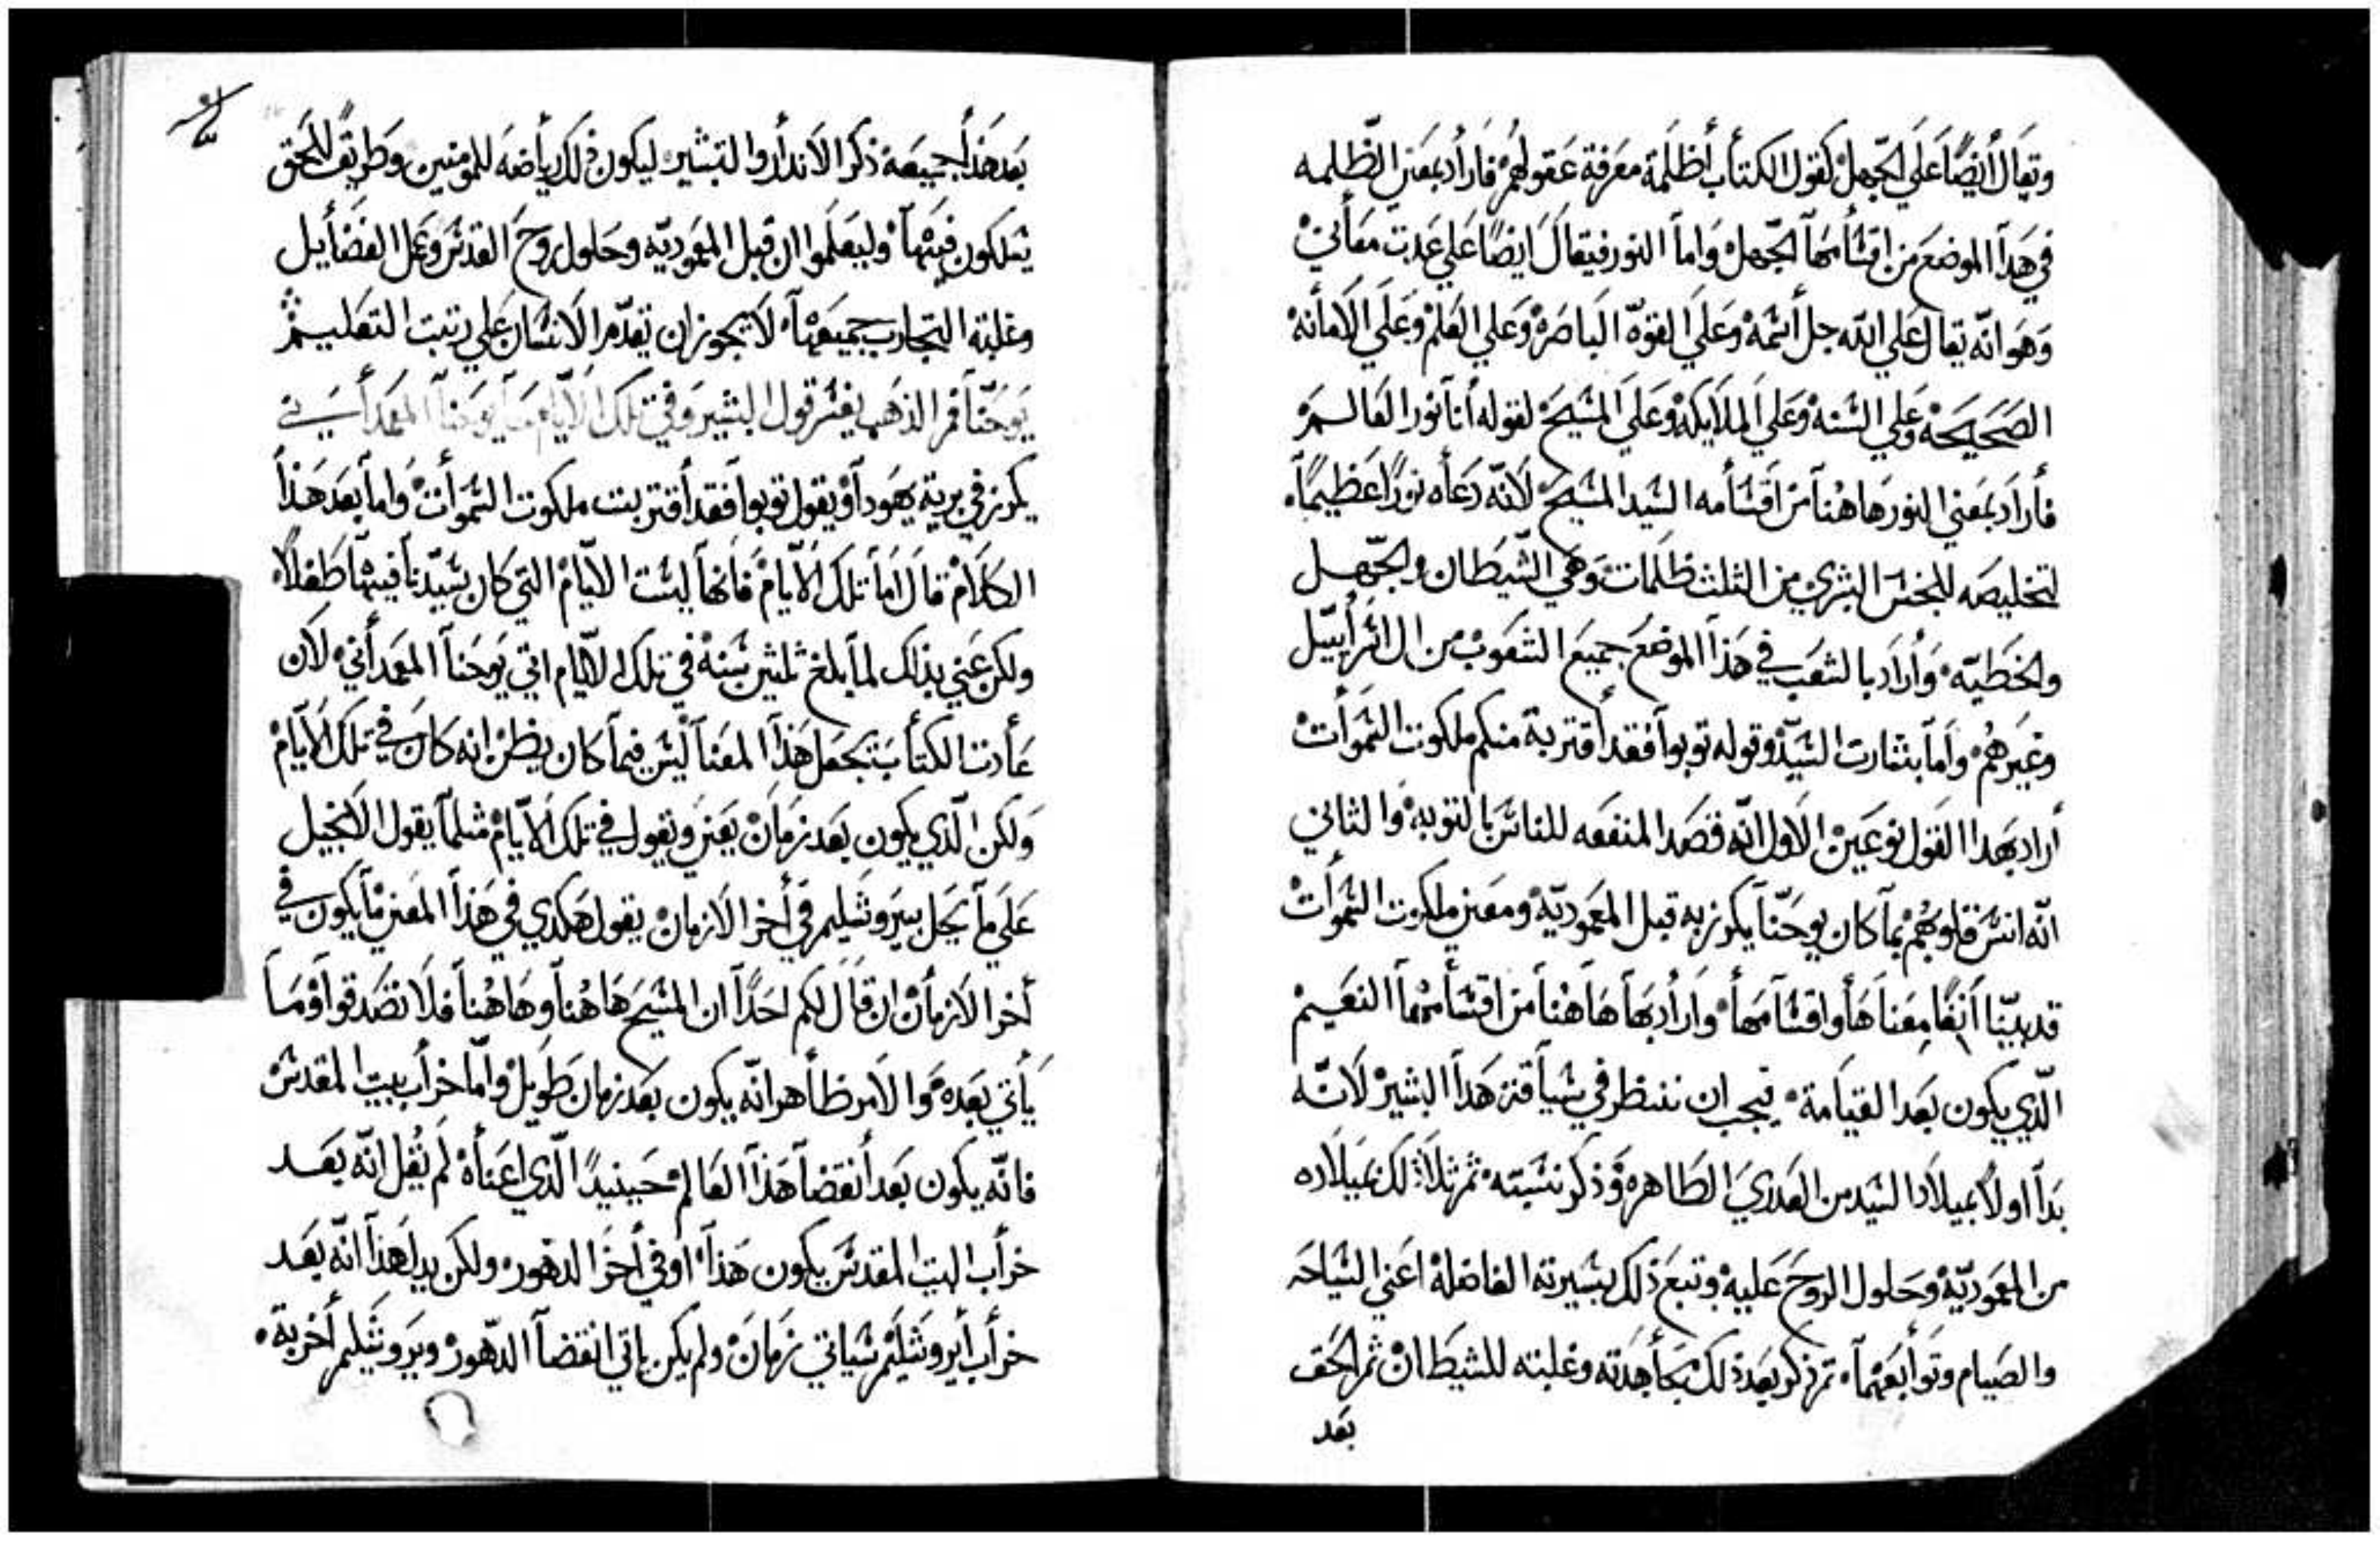 وتقال أيضًا على الجهل كقول الكتاب أظلمة معرفة عقولهم فاراد بمعني الظلمه
في هدا الموضع من اقسامها الجهل واما النور فيقال ايضًا علي عدت معاني
وهو انّه يقال علي الله جل أسمه وعلي القوّه الباصره وعلي العلم وعلي الامانه
الصحيحه وعلي السنه وعلي الملايكه وعلي المسيح لقوله أنا نور العالم
فأراد بمعني النور هاهنا من اقسامه السيد المسيح لانّه دعاه نورًا عظيمًا
لتخليصه للجنس البشري من الثلث ظلمات وهي الشيطان والجهل
والخطيّه وأراد بالشعب في هذا الموضع جميع الشعوب من ال اسراييل
وغيرهم واما بشارت السيّد وقوله توبوا فقد أقتربة منكم ملكوت السموات
أراد بهدا القول نوعين الاول انّه قصد المنفعه للناس بالتوبه والثاني
انّه انس قلوبهم بما كان يوحنّا يكرز به قبل المعموديّة ومعني ملكوت السموات
قد بيّنا أنفًا معناها واقسامها وأراد بها هاهنا من اقسامها النعيم
الّدي يكون بعد القيامة فيجب ان ننظر في سياقة هدا البشير لانّه
بدأ اولاً بميلاد السيد من العدري الطاهره وذكر نسبته ثم ثلا ذلك بميلاده
من المعموديّة وحلول الروح عليه وتبع ذلك بسيرته الفاضلة اعني السياحه
والصيام وتوابعهما ثم ذكر بعد ذلك مجاهدته وغلبته للشيطان ثم الحق
بعد
بعد هذا جميعة ذكر الاندار والتبشير ليكون في ذلك رياضه للمومنين وطريقًا للحق
يسلكون فيها وليعلموا ان قبل المعوديّه وحلول روح القدس وعمل الفضايل
وغلبته التجارب جميعها لا يجوز ان تقدّم الانسان علي رتبت التعليم
يوحنّا فم الذهب يفسر قول البشير وفي تلك الايام جا يوحنا المعمداني
يكرز في برية يهودا ويقول توبوا فقد أقتربت ملكوت السموات واما بعد هذا
الكلام قال اما تلك الايّام فانها ليست الايّام التي كان سيّدنا فيها طفلاً
ولكن عني بذلك لما بلغ ثلثين سنة في تلك الايّام اتي يوحنا المعمداني لان
عادت الكتاب تجعل هذا المعنا ليس فيما كان يظن انه كان في تلك الايّام
ولكن الّدي يكون بعد زمان يعني ويقول في تلك الايّام مثلما يقول الانجيل
علي ما يحل بيروشليم في أخر الازمان يقول هكدي في هذا المعني ما يكون في
أخر الازمان ان قال لكم احدًا ان المسيح هاهنا وهاهنا فلا تصدقوا وما
يأتي بعده والامر ظاهر انّه يكون بعد زمان طويل وامّا خراب بيت المقدس
فانّه يكون بعد أنقضا هذا العالم حينيدًا الّدي اعناه لم يقل انّه بعد
خراب البيت المقدس يكون هذا او في أخر الدهور ولكن بدل هذا انّه بعد
خراب أيروشليم سياتي زمان ولم يكن ياتي انقضا الدّهور ويروشليم أخربة